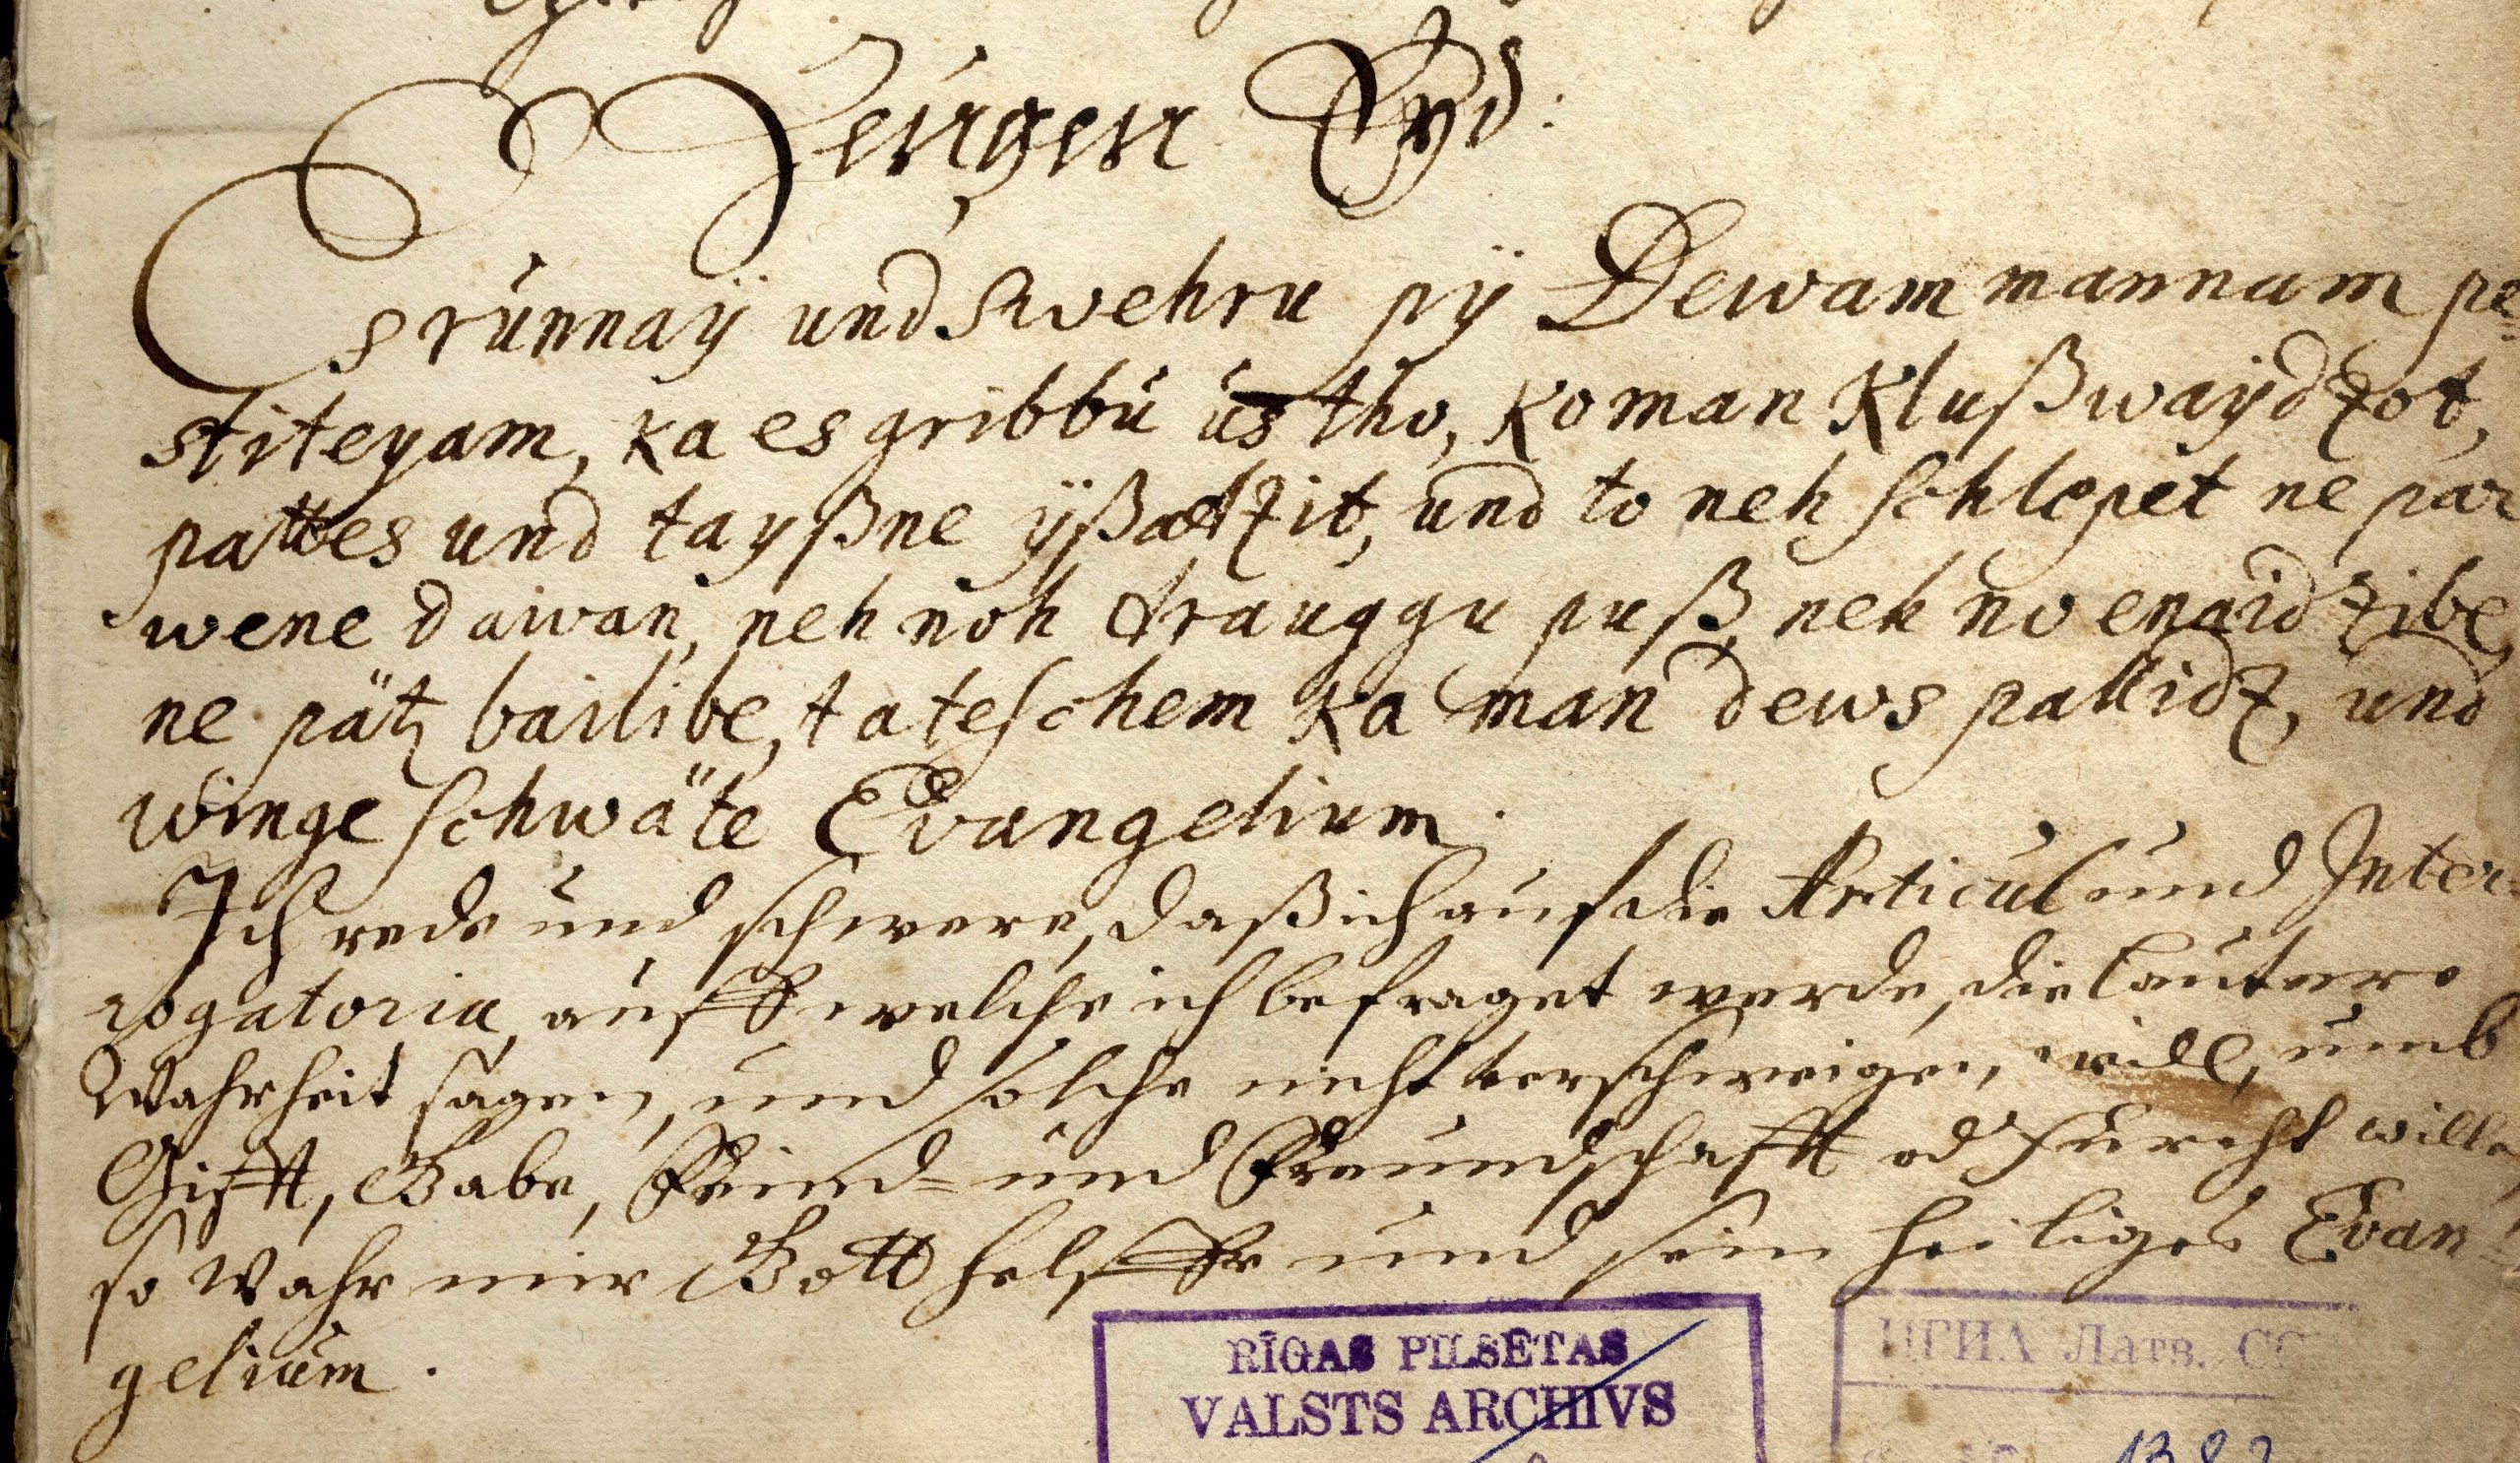 Zeugen Eyd:
Es runnaÿ und Swehru pÿ Dewam mannam pe-
stiteyam, ka es gribbu us tho, Ko man Klußwaÿdtzot,
pattes und tayßne ÿßatzit, und to neh schlepet ne par
wene dawan, neh noh drauggu puß, neh no enaidtzibe,
ne pätz bailibe, tateschem ka man dews pallidz, und
winge schwäte Evangelium.
Ich rede und schwere, daß ich auf die Articul und Inter
rogatoria, auff welche ich befraget werde, die lautere
Wahrheit sagen, und solche nicht verschweigen, will, umb
Gifft, Gabe, Feind- und Freundschafft od Furcht willen
so Wahr mir Gott helffe und sein heiliges Evan-
gelium.
RĪGAS PILSĒTAS
VALSTS ARCHIVS
ЦГИА Латв. СС